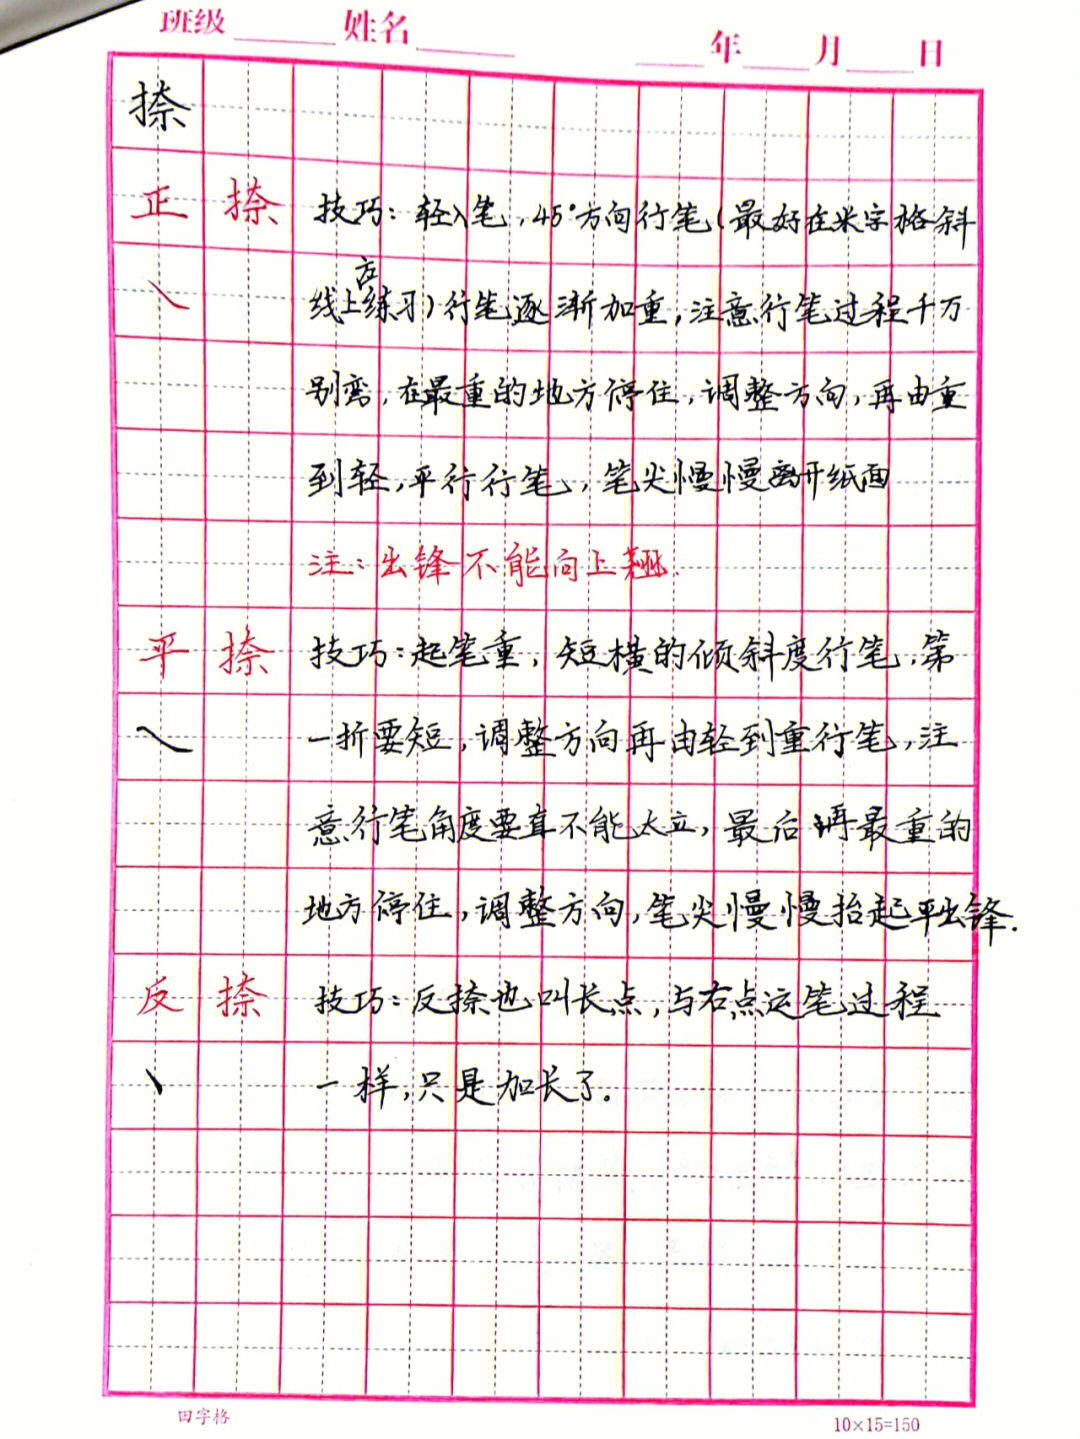 班级 姓名 年 月 日
捺
正捺 技巧：轻入笔，45°方向行笔（最好在米字格斜
线上练习）行笔逐渐加重，注意行笔过程千万
别弯，在最重的地方停住，调整方向，再由重
到轻，平行行笔，笔尖慢慢离开纸面
注：出锋不能向上翘.
平捺 技巧：起笔重，短横的倾斜度行笔，第
一折要短，调整方向再由轻到重行笔，注
意行笔角度要直不能太立，最后再最重的
地方停住，调整方向，笔尖慢慢抬起平出锋.
反捺 技巧：反捺也叫长点，与右点运笔过程
一样，只是加长了.
田字格 10×15=150